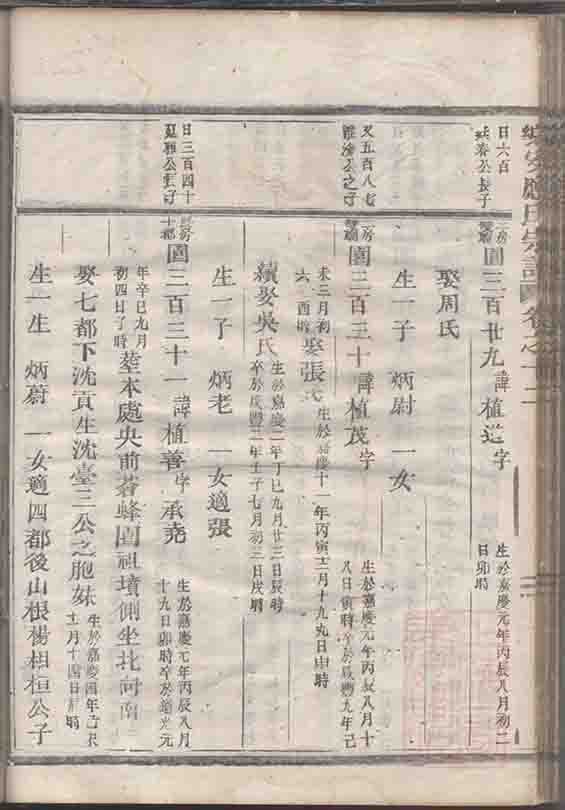 日六百
公長子
圓三百廿九 諱植 字
生於嘉慶元年丙辰八月初二
日卯時
娶周氏
生一子 炳尉 一女
又五百八七
公之子
圓三百三十 諱植茂 字
生於嘉慶元年丙辰八月十
八日寅時卒於咸豐九年己
未三月初
六 酉時
娶張氏
生於嘉慶十一年丙寅十二月十九日申時
續娶吳氏
生於嘉慶二年丁巳九月廿三日辰時
卒於咸豐二年壬子七月初三日戌時
生一子 炳老 一女適張
日三百四十
圓三百三十一 諱植善 字承堯
生於嘉慶元年丙辰八月
十九日卯時卒於道光元
年辛巳九月
初四日丁時
塟本處央前 蜂園祖墳側坐北向南
娶七都下沈貢生沈臺三公之胞妹
生一生 炳蔚 一女適四都後山根楊相桓公子